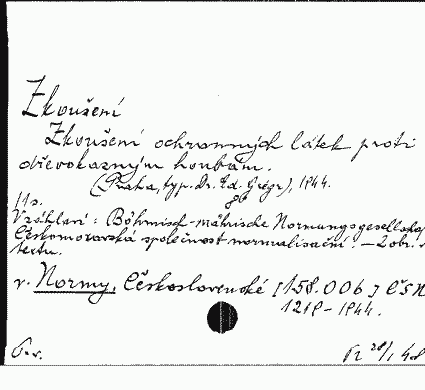 Zkoušení
Zkoušení ochranných látek proti
dřevokazným houbám.
(Praha, typ. Dr. Ed. Grégr), 1944.
8°
11 s.
V záhlaví: Böhmisch-mährische Normungsgesellschaf
Českomoravská společnost normalisační. — 2 obr. v
textu.
v. Normy, Československé [158.006] ČSN
1219-1944.